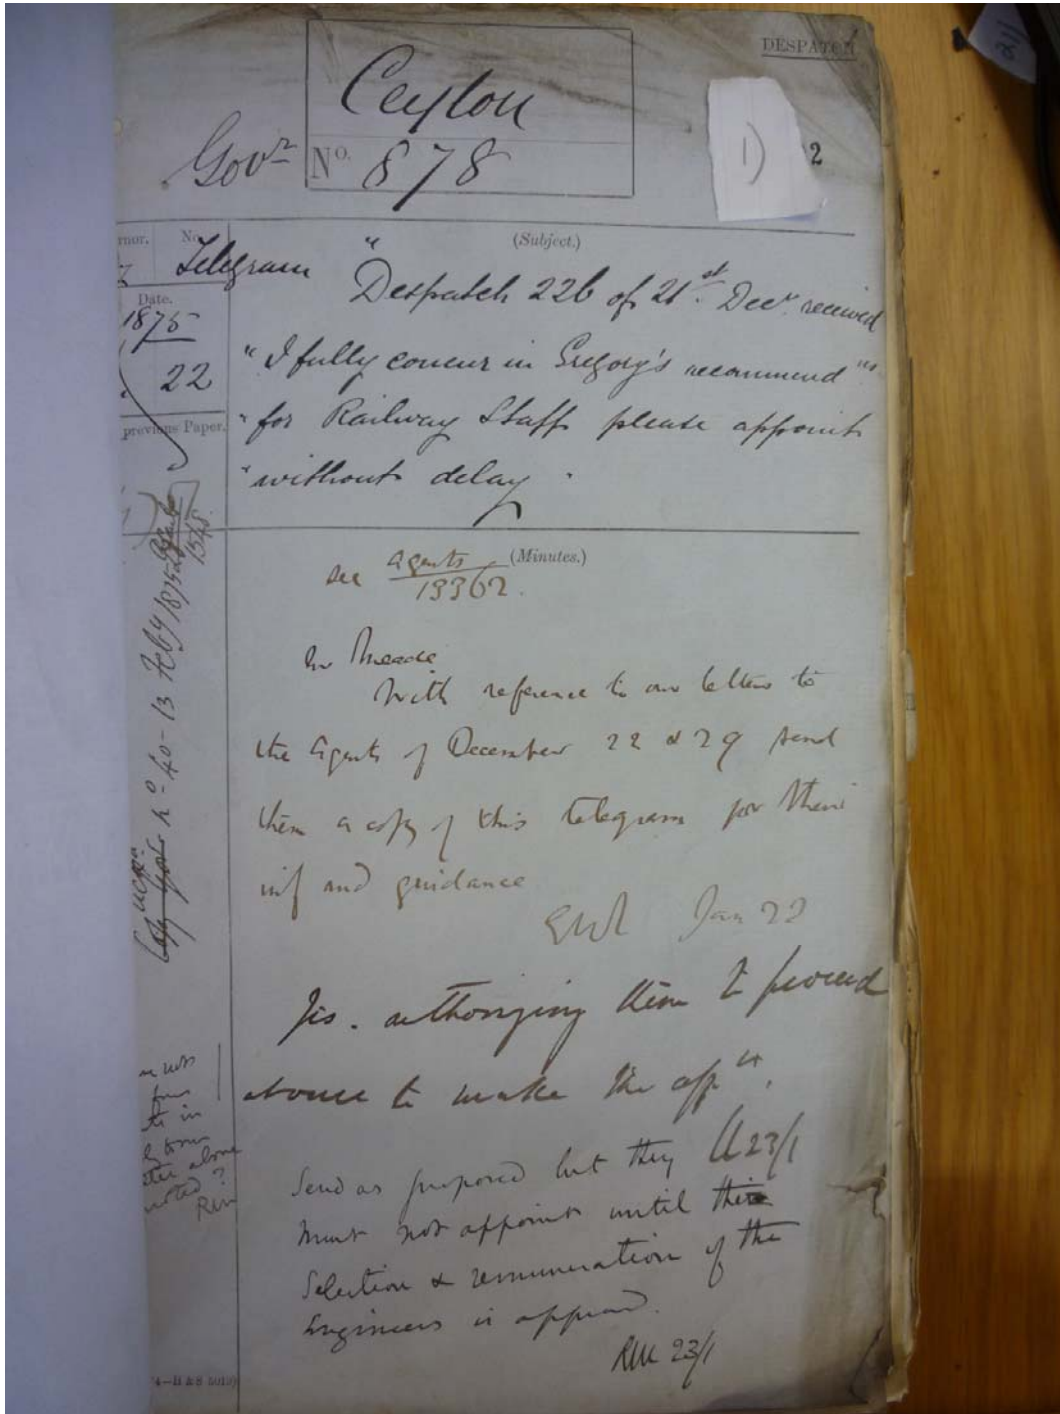 DESPATCH
Ceylon
Govr
No. 878
1)
2
rnor. No. (Subject.)
Telegram
Date.
1875
22
previous Paper.
" Despatch 226 of 21st Decr received
" I fully concur in Gregory's recommendns
" for Railway Staff please appoint
" without delay.
(Minutes.)
see Agents
13362.
Mr Meade
With reference to our letters to
the Agents of December 22 & 29 send
them a copy of this telegram for their
inf and guidance
Jan 22
Yes. authorizing them to proceed
at once to make the appts.
23/1
Send as proposed but they
must not appoint until the
Selection & remuneration of the
Engineers is approved.
23/1
no 40 - 13 Feby 1875
1345
above